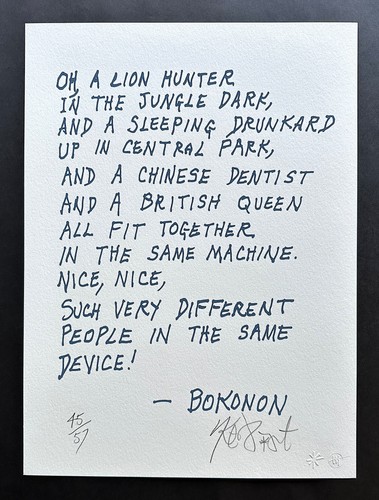 OH, A LION HUNTER
IN THE JUNGLE DARK,
AND A SLEEPING DRUNKARD
UP IN CENTRAL PARK,
AND A CHINESE DENTIST
AND A BRITISH QUEEN
ALL FIT TOGETHER
IN THE SAME MACHINE.
NICE, NICE,
SUCH VERY DIFFERENT
PEOPLE IN THE SAME
DEVICE!
— BOKONON
45/57